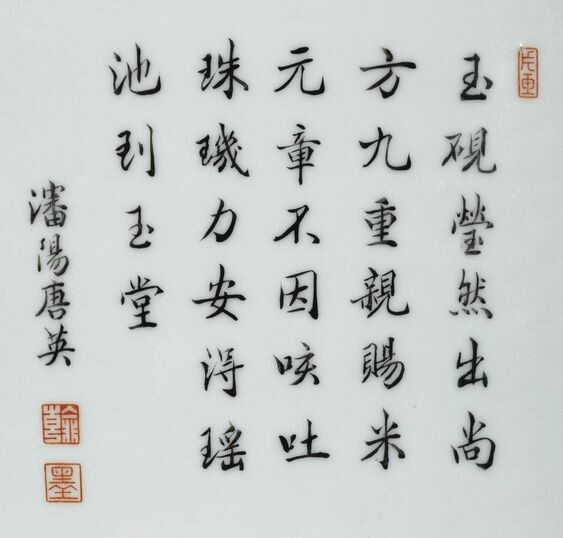 玉硯瑩然出尚
方九重親賜米
元章不因咳吐
珠璣力安得瑶
池到玉堂
瀋陽唐英
翰
墨